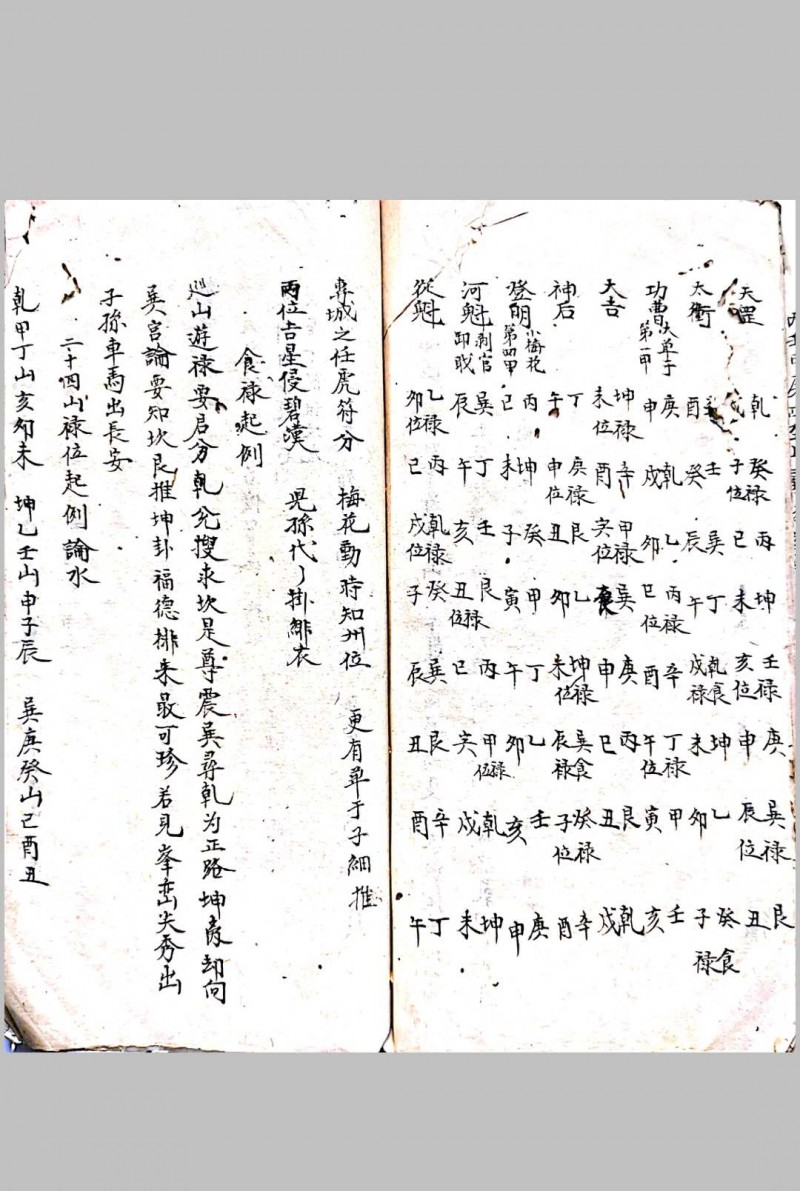 天罡 乾戌 癸子禄位 丙巳 坤未 壬亥禄位 庚申 巽辰禄位 艮丑
太衝 酉 壬癸 巽辰 丁午 乾戌食禄 坤未 乙卯 癸子食禄
功曹 大单于 第一甲 庚申 乾戌 乙卯 丙巳禄位 辛酉 丁午禄位 甲寅 壬亥
大吉 坤未禄位 辛酉 甲亥禄位 巽 庚申 丙巳 艮丑 乾戌
神后 丁午 庚申禄位 艮丑 乙卯 坤未禄位 巽辰食禄 癸子禄位 辛酉
登明 小梅花 第四甲 丙巳 坤未 癸子 甲寅 丁午 乙卯 壬亥 庚申
河魁 刺官 卸職 巽辰 丁午 壬亥 艮丑禄位 丙巳 甲亥禄位 乾戌 坤未
從魁 乙卯禄位 丙巳 乾戌禄位 癸子 巽辰 艮丑 辛酉 丁午
專城之任虎符分 梅花動時知州位 更有单于子細推
兩位吉星侵碧漢 児孫代〻掛緋衣
食禄起例
巡山遊禄要君分乾兊搜求坎是尊震巽尋乹为正路坤离却向
巽宮論要知坎艮推坤卦福德排来最可珍若見峯峦尖秀出
子孫車馬出長安
二十四山禄位起例論水
乾甲丁山亥卯未 坤乙壬山申子辰 巽庚癸山巳酉丑